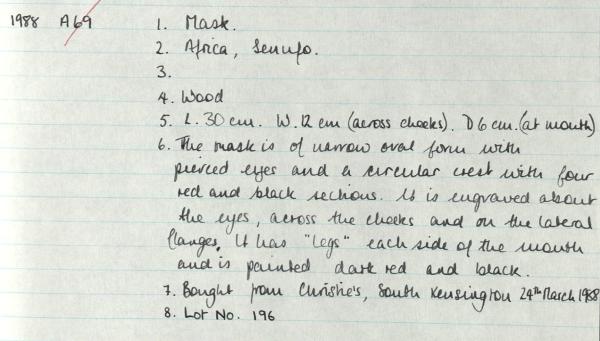 1988 A69 1. Mask.
2. Africa, Senufo.
3.
4. Wood
5. L. 30 cm. W. 12 cm (across cheeks). D 6 cm. (at mouth)
6. The mask is of narrow oval form with
pierced eyes and a circular crest with four
red and black sections. It is engraved about
the eyes, across the cheeks and on the lateral
flanges. It has "legs" each side of the mouth
and is painted dark red and black.
7. Bought from Christie's, South Kensington 24th March 1988
8. Lot No. 196